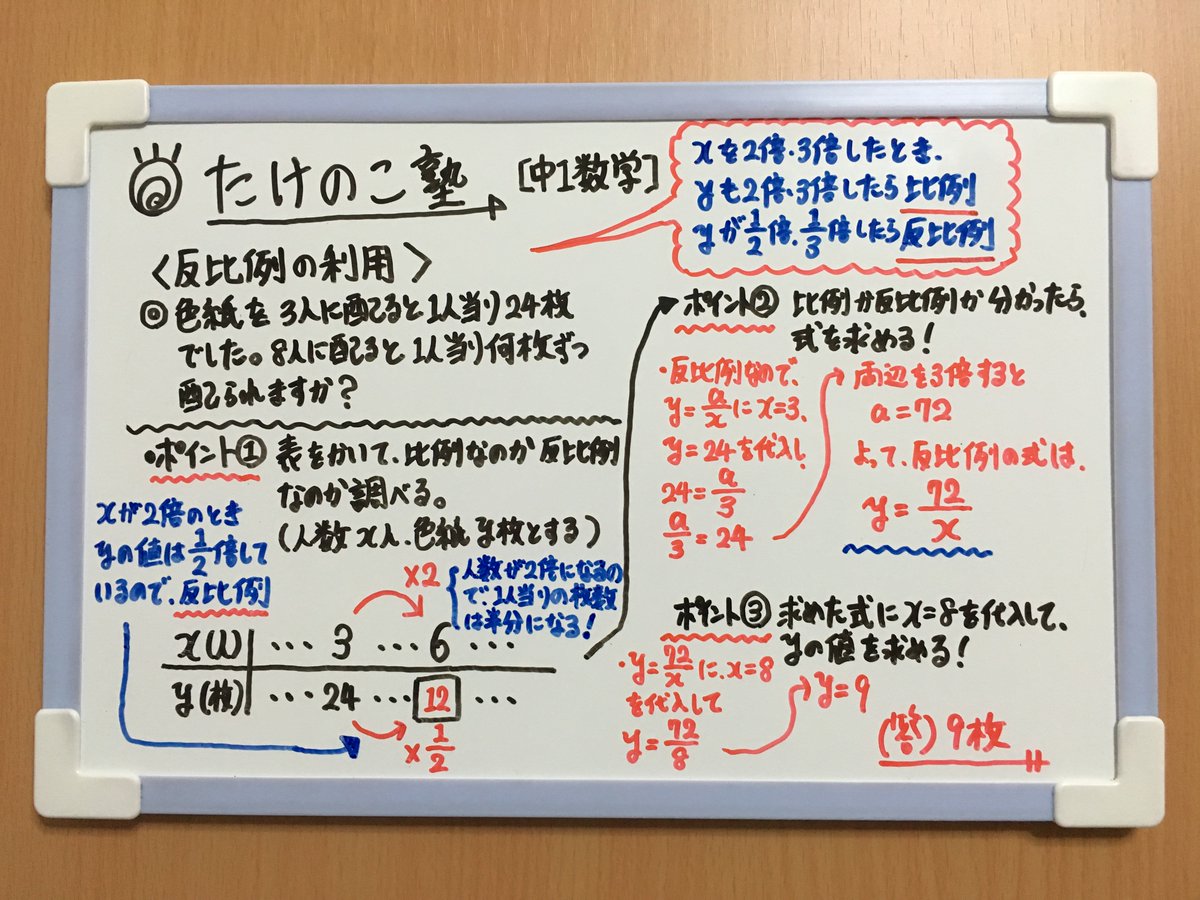 たけのこ塾
[中1数学]
xを2倍・3倍したとき、
yも2倍・3倍したら比例
yが1/2倍、1/3倍したら反比例
〈反比例の利用〉
◎色紙を3人に配ると1人当り24枚
でした。8人に配ると1人当り何枚ずつ
配られますか？
・ポイント① 表をかいて、比例なのか反比例
なのか調べる。
(人数x人、色紙y枚とする)
xが2倍のとき
yの値は1/2倍して
いるので、反比例
×2
人数が2倍になるの
で、1人当りの枚数
は半分になる！
x(人) … 3 … 6 …
y(枚) … 24 … 12 …
×1/2
ポイント② 比例か反比例か分かったら、
式を求める！
・反比例なので、
y=a/xにx=3、
y=24を代入し
24=a/3
a/3=24
両辺を3倍すると
a=72
よって、反比例の式は、
y=72/x
ポイント③ 求めた式にx=8を代入して、
yの値を求める！
・y=72/xに、x=8
を代入して
y=72/8
y=9
(答) 9枚